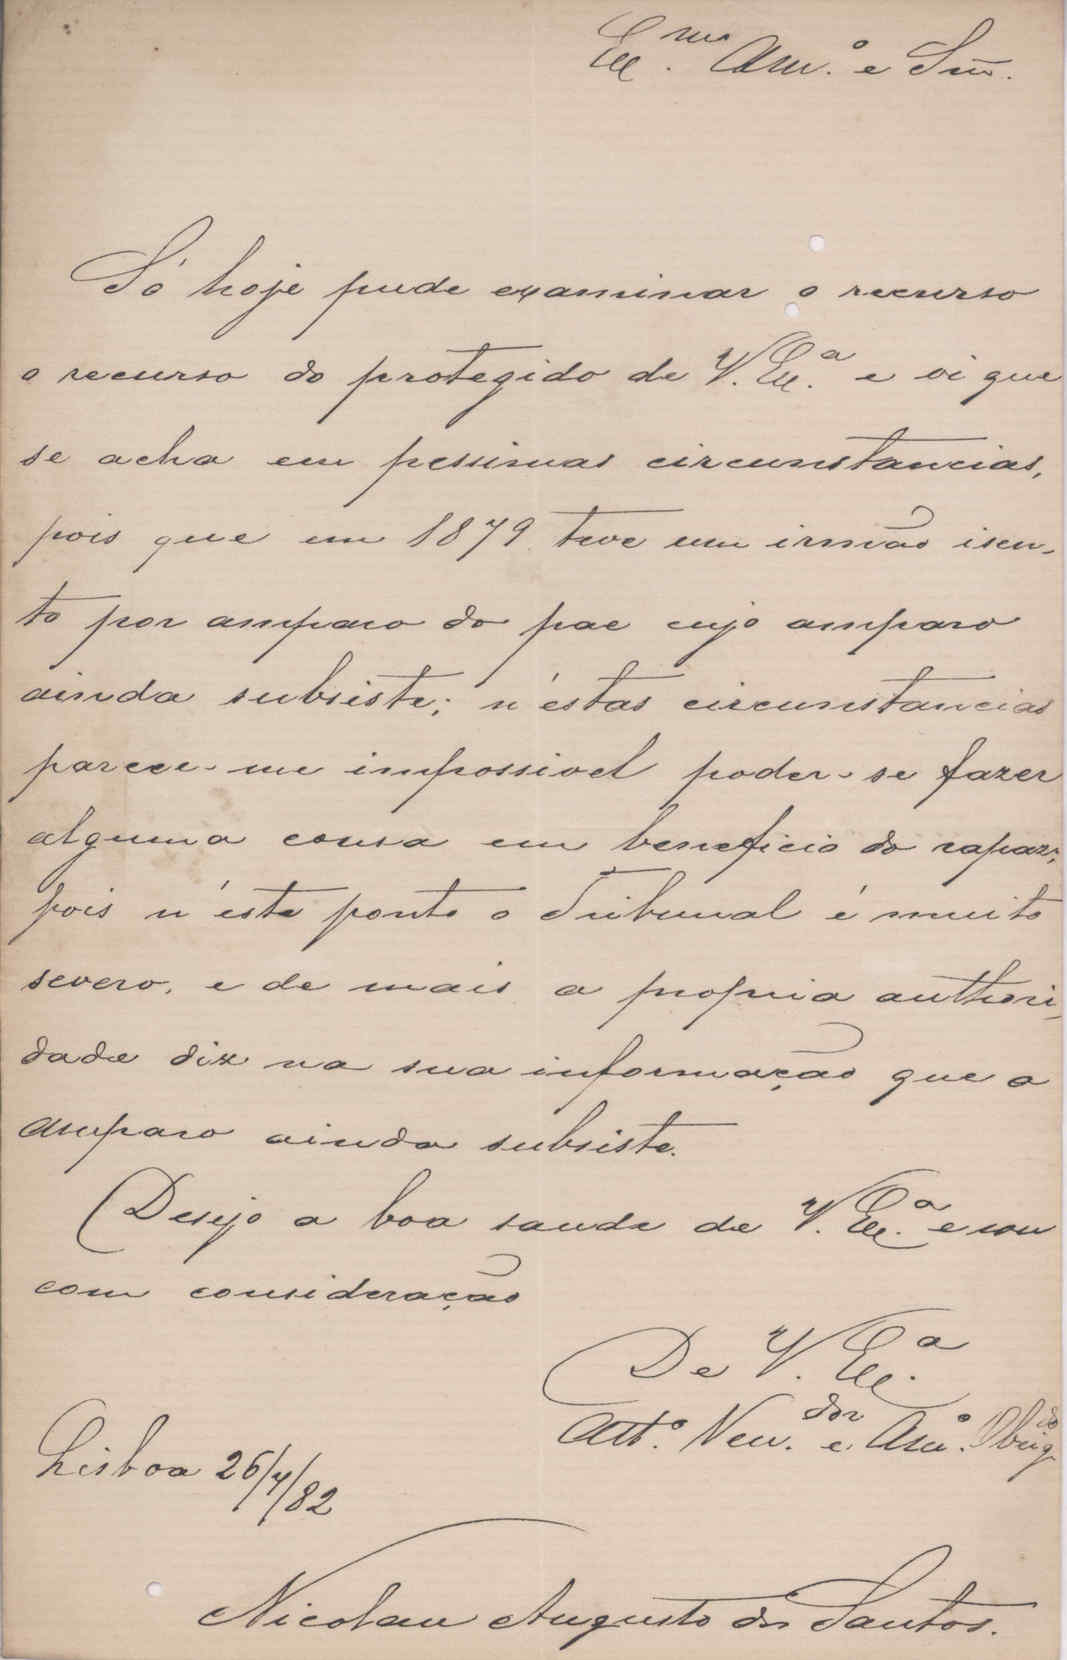 Ex.mo Am.o e Snr.
Só hoje pude examinar o recurso
o recurso do protegido de V. Ex.a e vi que
se acha em pessimas circumstancias,
pois que em 1879 teve um irmão isen-
to por amparo do pae cujo amparo
ainda subsiste; n'estas circumstancias
parece-me impossivel poder-se fazer
alguma cousa em beneficio do rapaz;
pois n'este ponto o Tribunal é muito
severo, e de mais a propria authori-
dade diz na sua informação que o
amparo ainda subsiste.
Desejo a boa saude de V. Ex.a e sou
com consideração
De V. Ex.a
Att.o Ven.dor e Am.o Obrig.do
Lisboa 26/4/82
Nicolau Augusto dos Santos.